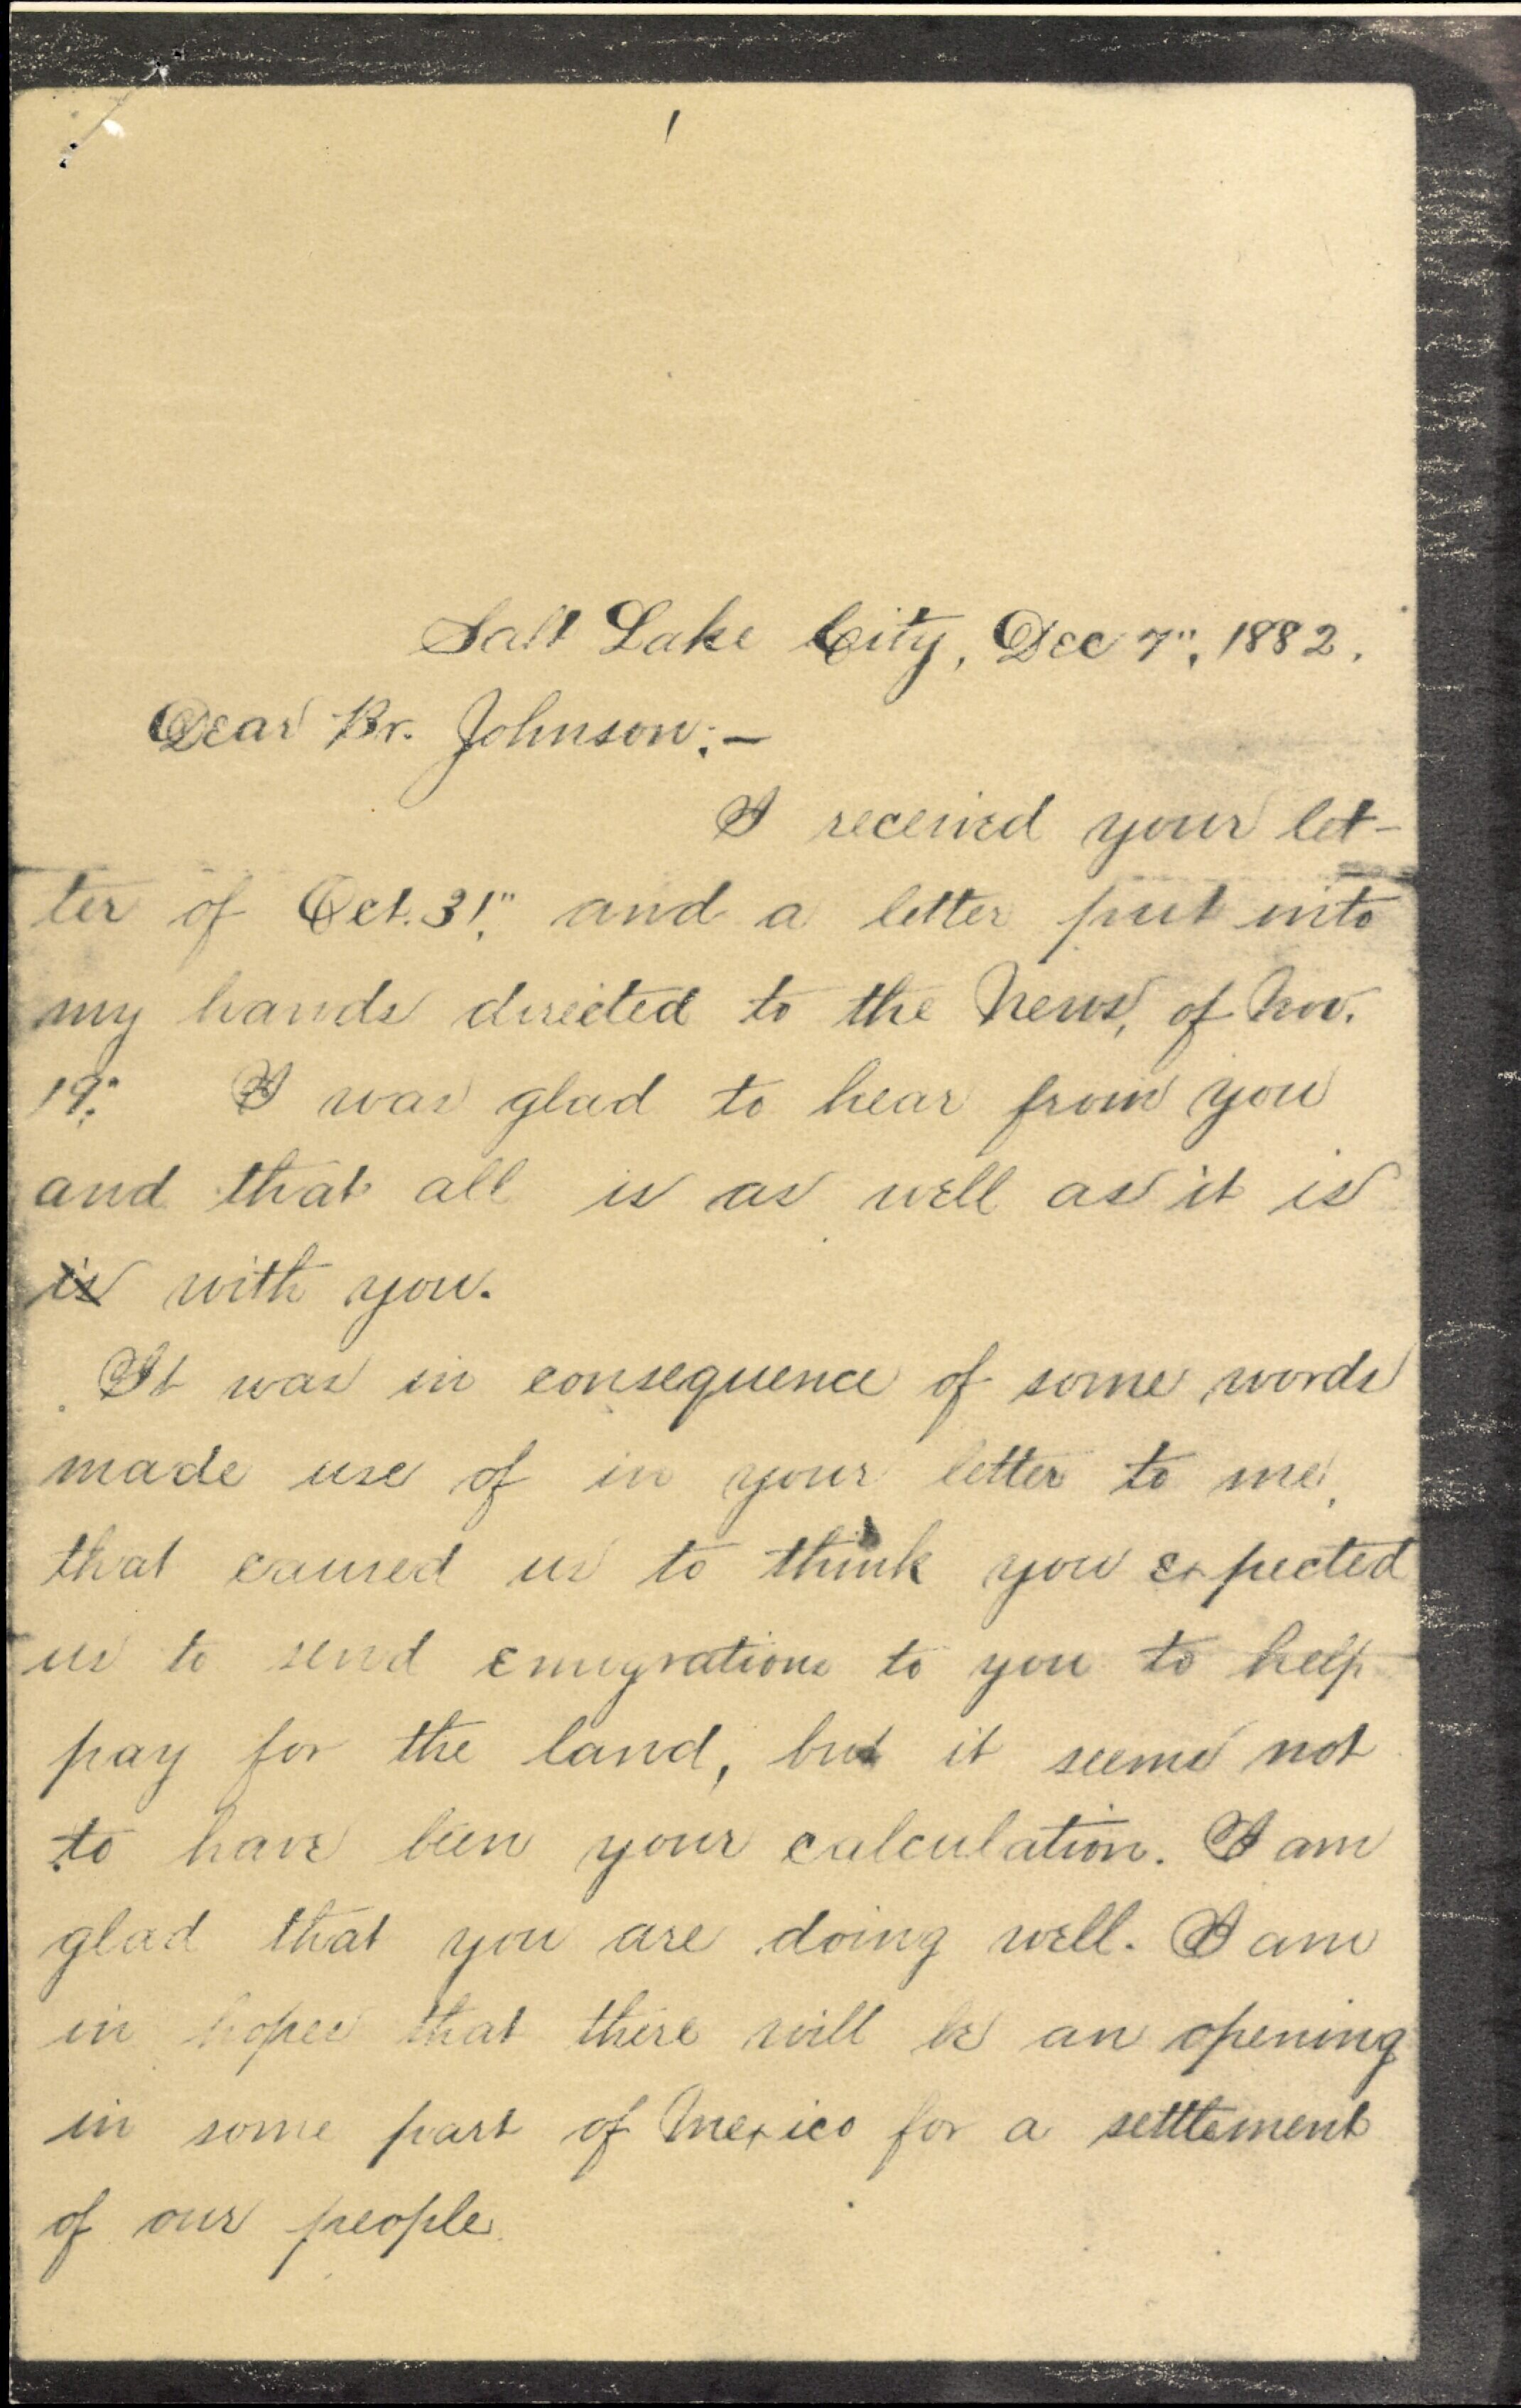 1
Salt Lake City, Dec 7", 1882.
Dear Br. Johnson:—
I received your let-
ter of Oct. 31", and a letter put into
my hands directed to the News, of Nov.
19". I was glad to hear from you
and that all is as well as it is
is with you.
It was in consequence of some words
made use of in your letter to me,
that caused us to think you expected
us to send emigrations to you to help
pay for the land, but it seems not
to have been your calculation. I am
glad that you are doing well. I am
in hopes that there will be an opening
in some part of Mexico for a settlement
of our people